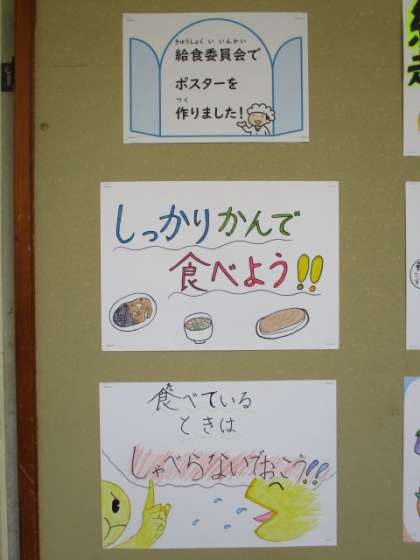 きゅうしょく い いんかい
給食委員会で
ポスターを
つく
作りました!
しっかりかんで
食べよう!!
食べている
ときは
しゃべらないでおこう!!